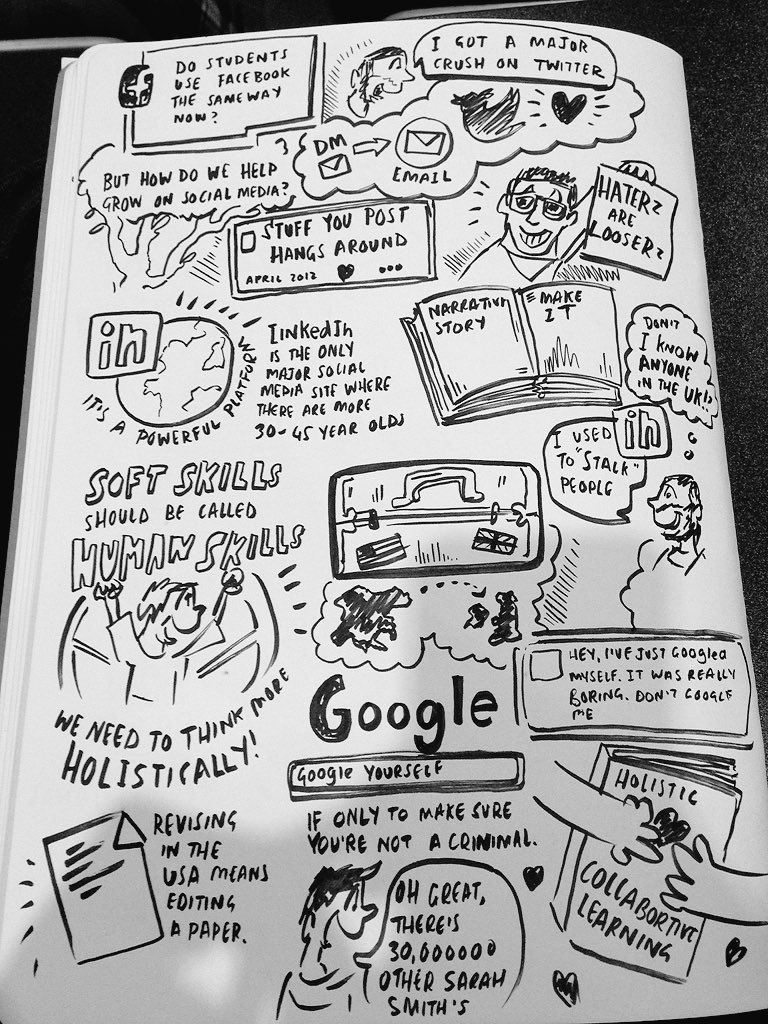 DO STUDENTS
USE FACEBOOK
THE SAME WAY
NOW?
I GOT A MAJOR
CRUSH ON TWITTER
DM
EMAIL
BUT HOW DO WE HELP
GROW ON SOCIAL MEDIA?
STUFF YOU POST
HANGS AROUND
APRIL 2012
HATERZ
ARE
LOOSERZ
in
IT'S A POWERFUL PLATFORM
LinkedIn
IS THE ONLY
MAJOR SOCIAL
MEDIA SITE WHERE
THERE ARE MORE
30-45 YEAR OLDS
NARRATIVE
STORY
MAKE
IT
DON'T
I KNOW
ANYONE
IN THE UK!?
in
I USED
TO "STALK"
PEOPLE
SOFT SKILLS
SHOULD BE CALLED
HUMAN SKILLS
WE NEED TO THINK MORE
HOLISTICALLY!
HEY, I'VE JUST GOOGLED
MYSELF. IT WAS REALLY
BORING. DON'T GOOGLE
ME
Google
GOOGLE YOURSELF
IF ONLY TO MAKE SURE
YOU'RE NOT A CRIMINAL.
REVISING
IN THE
USA MEANS
EDITING
A PAPER.
OH GREAT,
THERE'S
30,000000
OTHER SARAH
SMITH'S
HOLISTIC
COLLABORTIVE
LEARNING